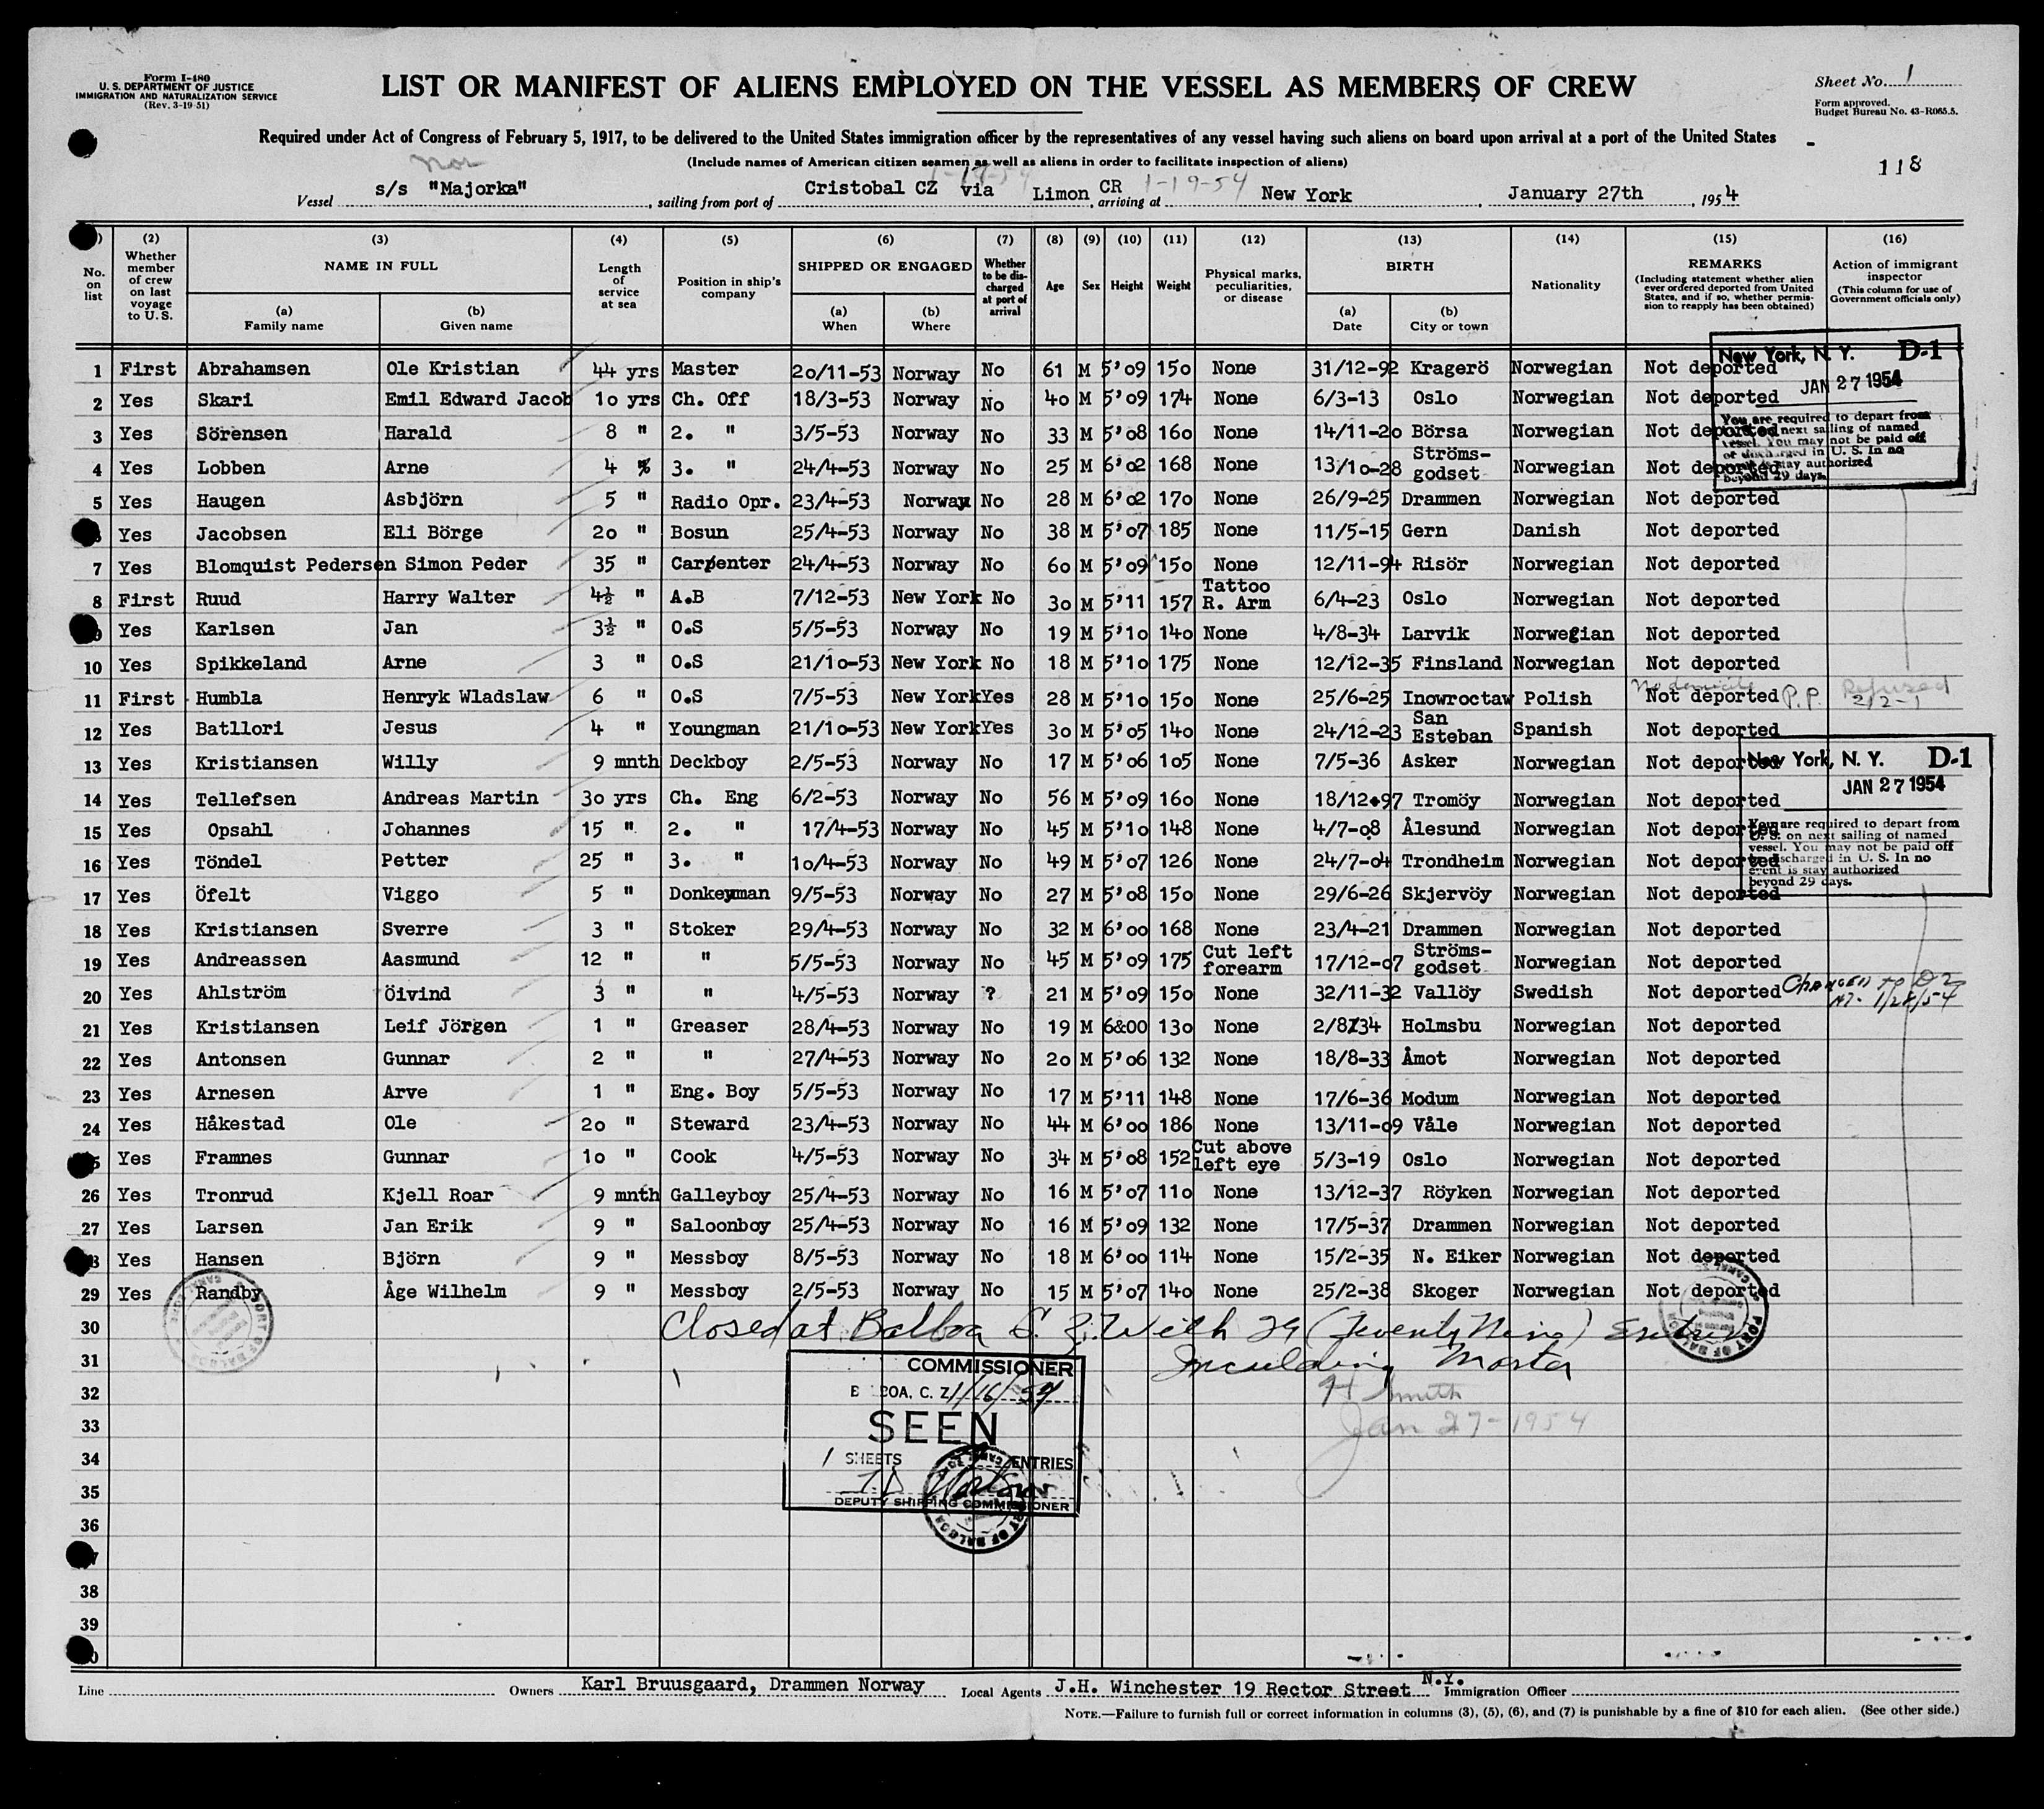 Form I-480
U. S. DEPARTMENT OF JUSTICE
IMMIGRATION AND NATURALIZATION SERVICE
(Rev. 3-19-51)
LIST OR MANIFEST OF ALIENS EMPLOYED ON THE VESSEL AS MEMBERS OF CREW
Sheet No. 1
Form approved.
Budget Bureau No. 43-R065.5.
Required under Act of Congress of February 5, 1917, to be delivered to the United States immigration officer by the representatives of any vessel having such aliens on board upon arrival at a port of the United States
(Include names of American citizen seamen as well as aliens in order to facilitate inspection of aliens)
118
Nor
1-17-54
1-19-54
Vessel s/s "Majorka", sailing from port of Cristobal CZ via Limon CR, arriving at New York, January 27th, 1954
(2) (3) (4) (5) (6) (7) (8) (9) (10) (11) (12) (13) (14) (15) (16)
No. on list
Whether member of crew on last voyage to U. S.
NAME IN FULL
(a) Family name
(b) Given name
Length of service at sea
Position in ship's company
SHIPPED OR ENGAGED
(a) When
(b) Where
Whether to be discharged at port of arrival
Age
Sex
Height
Weight
Physical marks, peculiarities, or disease
BIRTH
(a) Date
(b) City or town
Nationality
REMARKS
(Including statement whether alien ever ordered deported from United States, and if so, whether permission to reapply has been obtained)
Action of immigrant inspector
(This column for use of Government officials only)
1 First Abrahamsen Ole Kristian 44 yrs Master 20/11-53 Norway No 61 M 5'09 150 None 31/12-92 Kragerö Norwegian Not deported
2 Yes Skari Emil Edward Jacob 10 yrs Ch. Off 18/3-53 Norway No 40 M 5'09 174 None 6/3-13 Oslo Norwegian Not deported
3 Yes Sörensen Harald 8 " 2. " 3/5-53 Norway No 33 M 5'08 160 None 14/11-20 Börsa Norwegian Not deported
4 Yes Lobben Arne 4 " 3. " 24/4-53 Norway No 25 M 6'02 168 None 13/10-28 Ströms-godset Norwegian Not deported
5 Yes Haugen Asbjörn 5 " Radio Opr. 23/4-53 Norway No 28 M 6'02 170 None 26/9-25 Drammen Norwegian Not deported
Yes Jacobsen Eli Börge 20 " Bosun 25/4-53 Norway No 38 M 5'07 185 None 11/5-15 Gern Danish Not deported
7 Yes Blomquist Pedersen Simon Peder 35 " Carpenter 24/4-53 Norway No 60 M 5'09 150 None 12/11-94 Risör Norwegian Not deported
8 First Ruud Harry Walter 4½ " A.B 7/12-53 New York No 30 M 5'11 157 Tattoo R. Arm 6/4-23 Oslo Norwegian Not deported
9 Yes Karlsen Jan 3½ " O.S 5/5-53 Norway No 19 M 5'10 140 None 4/8-34 Larvik Norwegian Not deported
10 Yes Spikkeland Arne 3 " O.S 21/10-53 New York No 18 M 5'10 175 None 12/12-35 Finsland Norwegian Not deported
11 First Humbla Henryk Wladslaw 6 " O.S 7/5-53 New York Yes 28 M 5'10 150 None 25/6-25 Inowroctaw Polish Not deported P.P. Refused 212-1
12 Yes Batllori Jesus 4 " Youngman 21/10-53 New York Yes 30 M 5'05 140 None 24/12-23 San Esteban Spanish Not deported
13 Yes Kristiansen Willy 9 mnth Deckboy 2/5-53 Norway No 17 M 5'06 105 None 7/5-36 Asker Norwegian Not deported
14 Yes Tellefsen Andreas Martin 30 yrs Ch. Eng 6/2-53 Norway No 56 M 5'09 160 None 18/12-97 Tromöy Norwegian Not deported
15 Yes Opsahl Johannes 15 " 2. " 17/4-53 Norway No 45 M 5'10 148 None 4/7-08 Ålesund Norwegian Not deported
16 Yes Töndel Petter 25 " 3. " 10/4-53 Norway No 49 M 5'07 126 None 24/7-04 Trondheim Norwegian Not deported
17 Yes Öfelt Viggo 5 " Donkeyman 9/5-53 Norway No 27 M 5'08 150 None 29/6-26 Skjervöy Norwegian Not deported
18 Yes Kristiansen Sverre 3 " Stoker 29/4-53 Norway No 32 M 6'00 168 None 23/4-21 Drammen Norwegian Not deported
19 Yes Andreassen Aasmund 12 " " 5/5-53 Norway No 45 M 5'09 175 Cut left forearm 17/12-07 Ströms-godset Norwegian Not deported
20 Yes Ahlström Öivind 3 " " 4/5-53 Norway ? 21 M 5'09 150 None 32/11-32 Vallöy Swedish Not deported Changed to D2 1/28/54
21 Yes Kristiansen Leif Jörgen 1 " Greaser 28/4-53 Norway No 19 M 6&00 130 None 2/8-34 Holmsbu Norwegian Not deported
22 Yes Antonsen Gunnar 2 " " 27/4-53 Norway No 20 M 5'06 132 None 18/8-33 Åmot Norwegian Not deported
23 Yes Arnesen Arve 1 " Eng. Boy 5/5-53 Norway No 17 M 5'11 148 None 17/6-36 Modum Norwegian Not deported
24 Yes Håkestad Ole 20 " Steward 23/4-53 Norway No 44 M 6'00 186 None 13/11-09 Våle Norwegian Not deported
25 Yes Framnes Gunnar 10 " Cook 4/5-53 Norway No 34 M 5'08 152 Cut above left eye 5/3-19 Oslo Norwegian Not deported
26 Yes Tronrud Kjell Roar 9 mnth Galleyboy 25/4-53 Norway No 16 M 5'07 110 None 13/12-37 Röyken Norwegian Not deported
27 Yes Larsen Jan Erik 9 " Saloonboy 25/4-53 Norway No 16 M 5'09 132 None 17/5-37 Drammen Norwegian Not deported
28 Yes Hansen Björn 9 " Messboy 8/5-53 Norway No 18 M 6'00 114 None 15/2-35 N. Eiker Norwegian Not deported
29 Yes Randby Åge Wilhelm 9 " Messboy 2/5-53 Norway No 15 M 5'07 140 None 25/2-38 Skoger Norwegian Not deported
New York, N. Y. D-1
JAN 27 1954
You are required to depart from U. S. on next sailing of named vessel. You may not be paid off or discharged in U. S. In no event is stay authorized beyond 29 days.
New York, N. Y. D-1
JAN 27 1954
You are required to depart from
U. S. on next sailing of named
vessel. You may not be paid off
or discharged in U. S. In no
event is stay authorized
beyond 29 days.
30 Closed at Balboa C. Z. With 29 (Twenty Nine) Entries
31 Inculding Master
32 H Smith
33 Jan 27-1954
34
35
36
37
38
39
40
COMMISSIONER
BALBOA, C. Z. 1/16/54
SEEN
1 SHEETS ENTRIES
DEPUTY SHIPPING COMMISSIONER
PORT OF BALBOA
Line Owners Karl Bruusgaard, Drammen Norway Local Agents J.H. Winchester 19 Rector Street N.Y. Immigration Officer
NOTE.—Failure to furnish full or correct information in columns (3), (5), (6), and (7) is punishable by a fine of $10 for each alien. (See other side.)